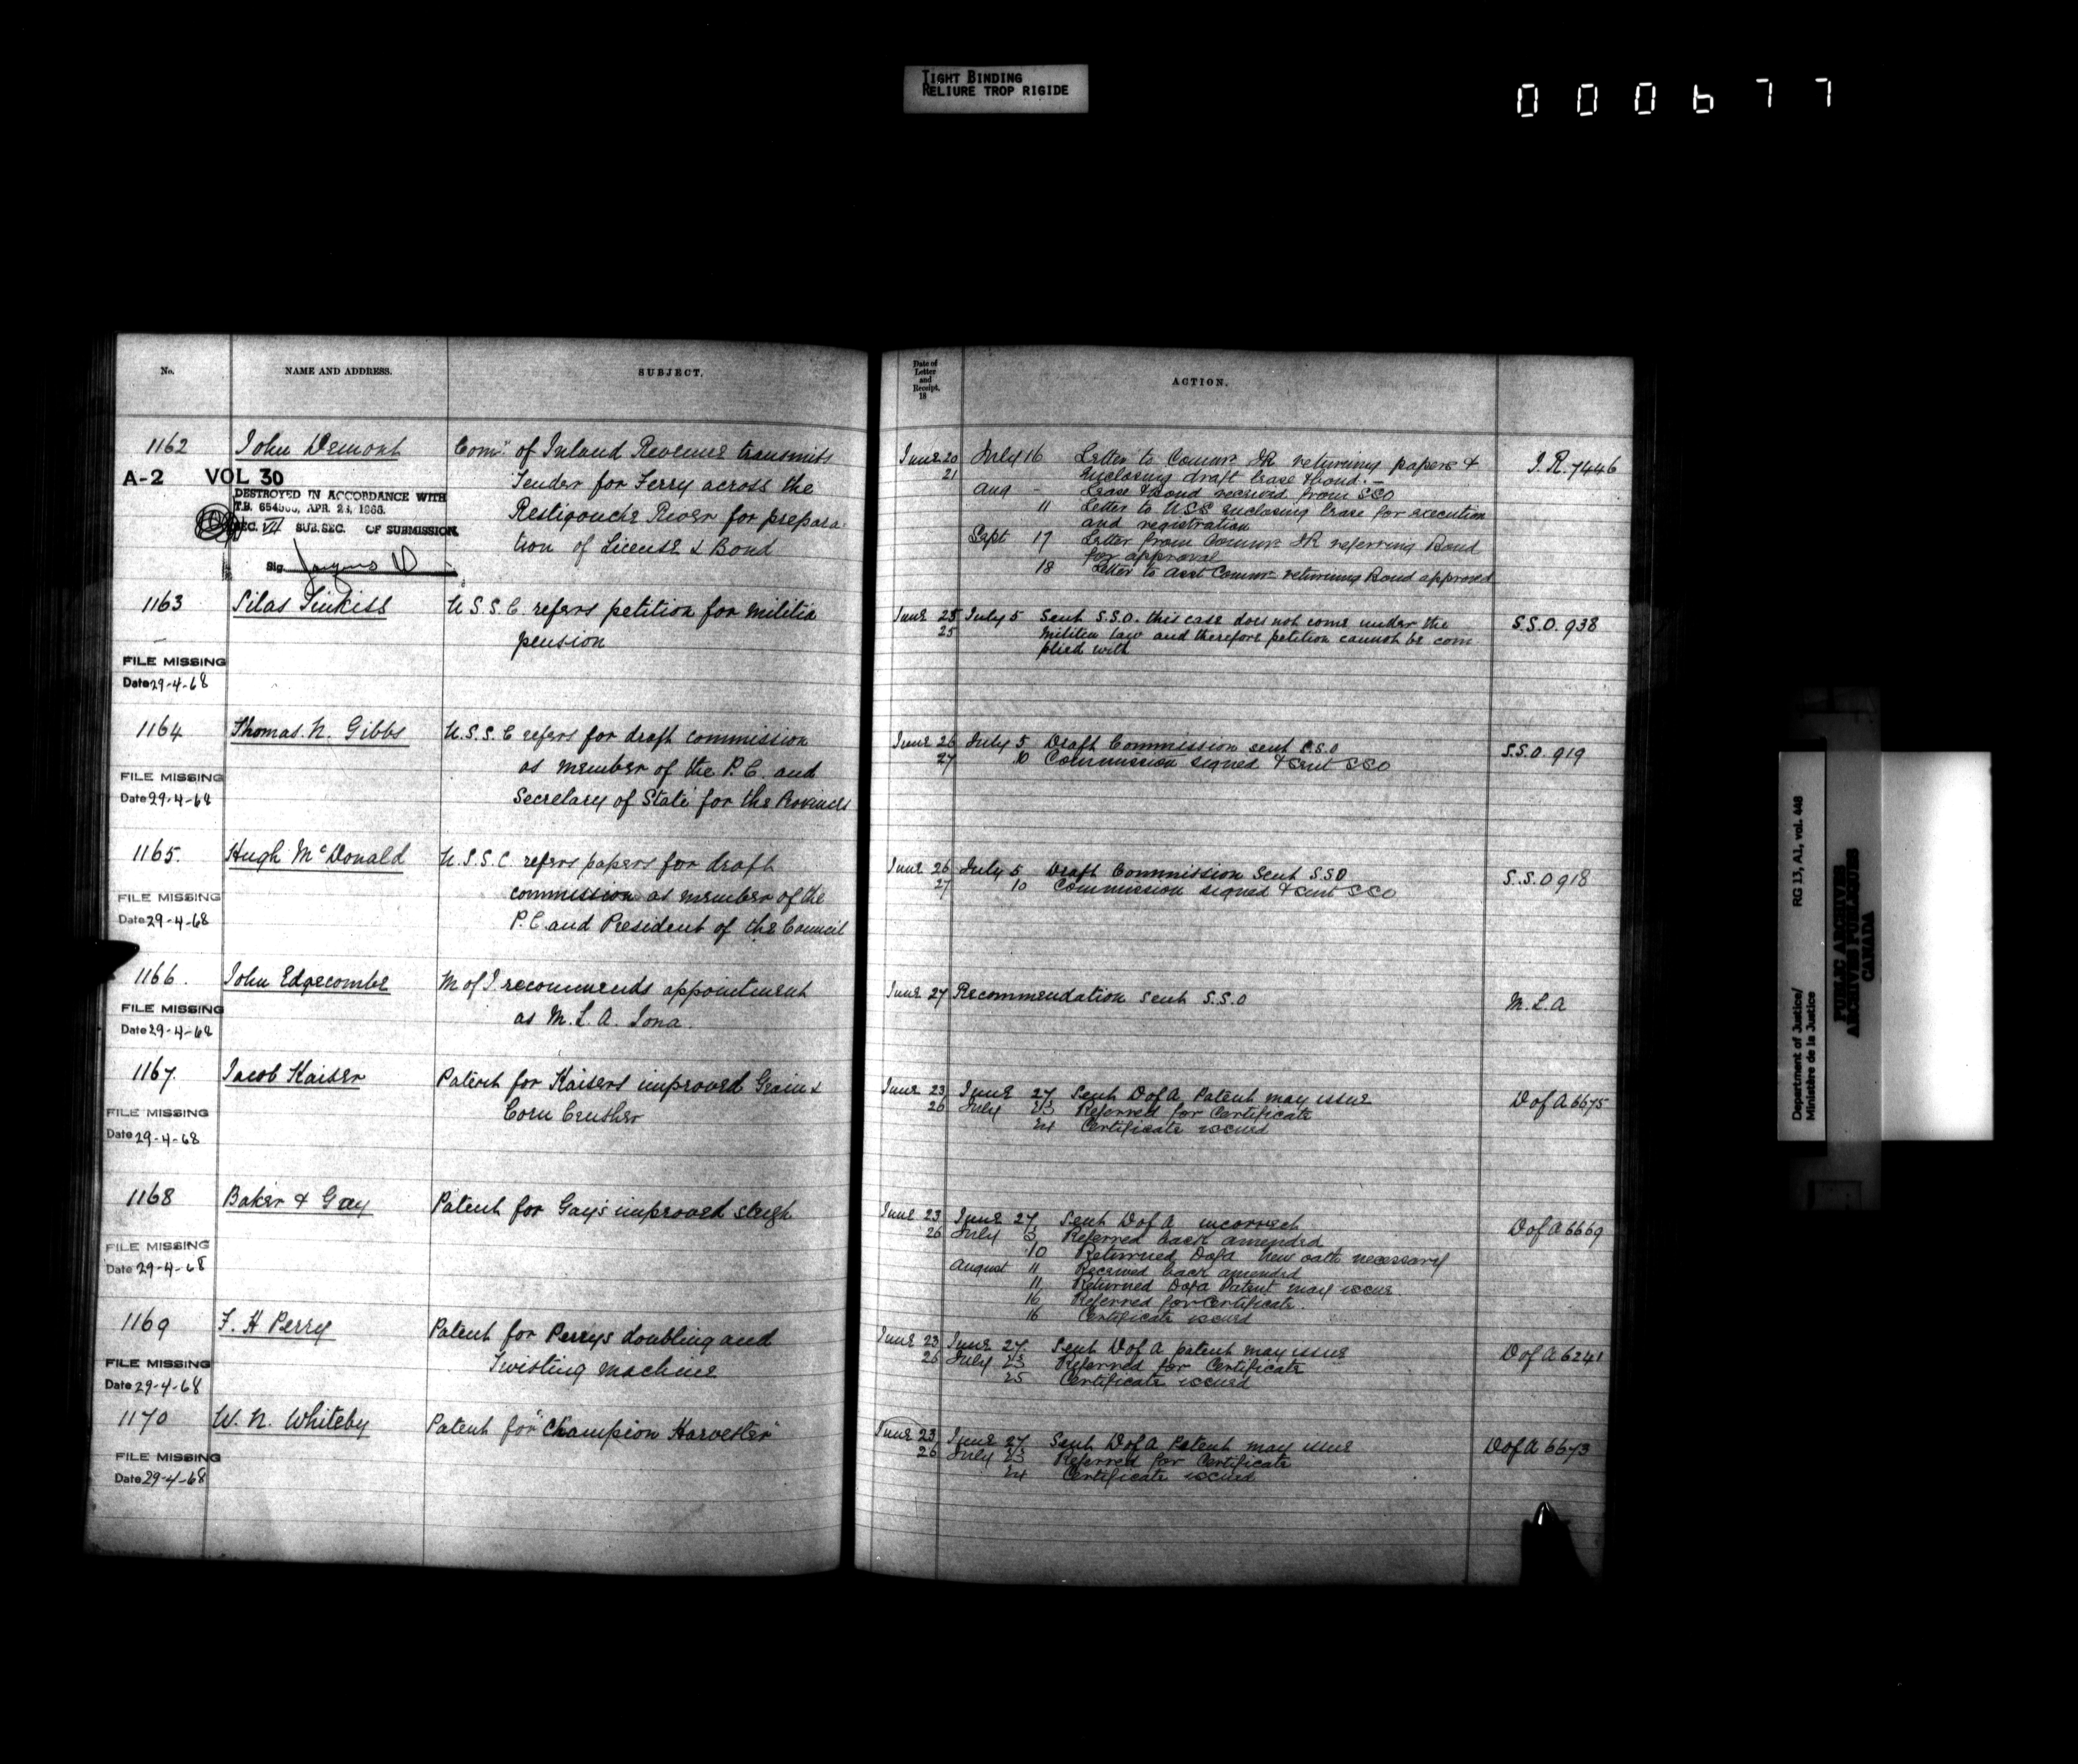 TIGHT BINDING
RELIURE TROP RIGIDE
000677
No.
NAME AND ADDRESS.
SUBJECT.
Date of
Letter
and
Receipt.
18
ACTION.
1162 John Demont Comr of Inland Revenue transmits
Tender for Ferry across the
Restigouche River for prepara-
tion of License & Bond
A-2 VOL 30
DESTROYED IN ACCORDANCE WITH
T.B. APR. 1966.
SEC. VII SUB.SEC. OF SUBMISSION.
Sig.
June 20 July 16 Letter to Commr IR returning papers &
21 enclosing draft lease & bond. –
Aug - Lease & Bond received from SSO
11 Letter to USS enclosing lease for execution
and registration
Sept 17 Letter from Commr IR referring Bond
for approval
18 Letter to Asst Commr returning Bond approved
I.R. 7446
1163 Silas U.S.S.C. refers petition for militia
pension
FILE MISSING
Date 29-4-68
June 25 July 5 Sent S.S.O. this case does not come under the
25 Militia law and therefore petition cannot be com
plied with
S.S.O. 938
1164 Thomas. N. Gibbs U.S.S.C refers for draft commission
as member of the P.C. and
Secretary of State for the Provinces
FILE MISSING
Date 29-4-68
June 26 July 5 Draft Commission sent S.S.O
27 10 Commission signed & sent SSO
S.S.O. 919
1165. Hugh McDonald U.S.S.C. refers papers for draft
commission as member of the
P.C. and President of the Council
FILE MISSING
Date 29-4-68
June 26 July 5 Draft Commission sent S.S.O
27 10 Commission signed & sent SSO
S.S.O 918
1166. John Edgecombe M of I recommends appointment
as M.L.A. Iona.
FILE MISSING
Date 29-4-68
June 27 Recommendation sent S.S.O
M.L.A
1167. Jacob Kaiser Patent for Kaisers improved Grain &
Corn Crusher
FILE MISSING
Date 29-4-68
June 23 June 27 Sent D of A Patent may issue
26 July 23 Referred for Certificate
24 Certificate issued
D of A 6675
1168 Baker & Gay Patent for Gay's improved sleigh
FILE MISSING
Date 29-4-68
June 23 June 27 Sent D of A incorrect
26 July 3 Referred back amended
10 Returned DofA new oath necessary
August 11 Received back amended
11 Returned DofA Patent may issue
16 Referred for Certificate.
16 Certificate issued
D of A 6669
1169 F. H Perry Patent for Perrys doubling and
Twisting Machine
FILE MISSING
Date 29-4-68
June 23 June 27. Sent D of A patent may issue
26 July 23 Referred for Certificate
25 Certificate issued
D of A 6241
1170 W. N. Whiteby Patent for "Champion Harvester"
FILE MISSING
Date 29-4-68
June 23 June 27 Sent D of A Patent may issue
26 July 23 Referred for Certificate
24 Certificate issued
D of A 6673
Department of Justice/
Ministère de la Justice
RG 13, A1, vol. 448
PUBLIC ARCHIVES
ARCHIVES PUBLIQUES
CANADA